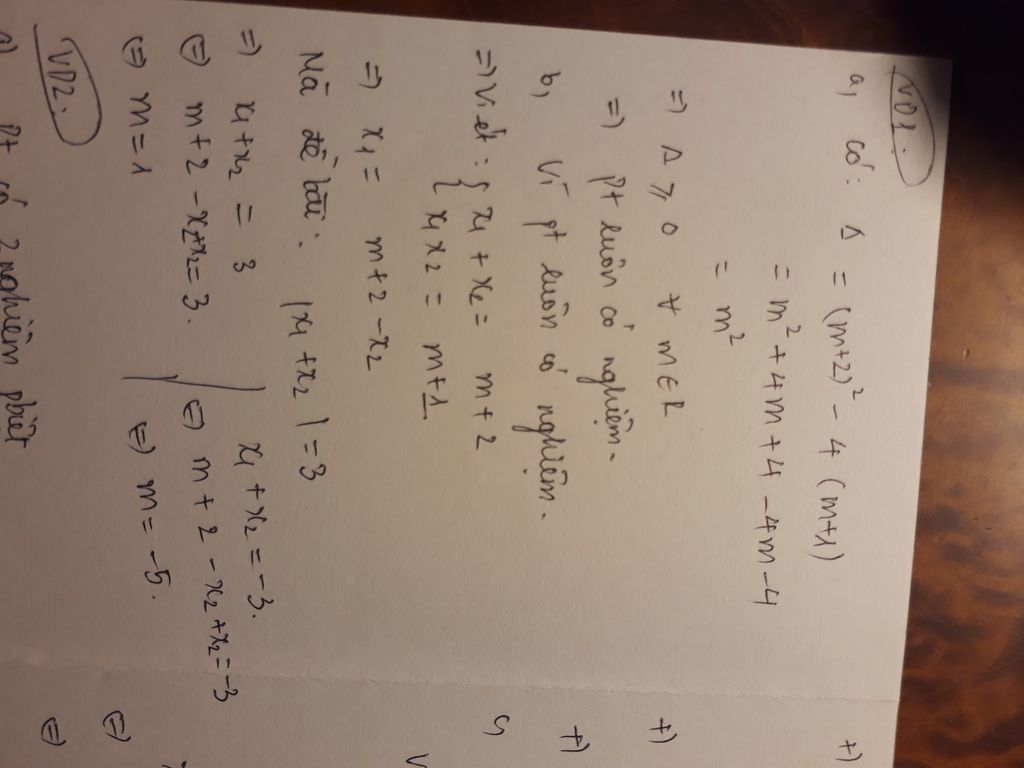 VD1.
a, có: Δ = (m+2)² - 4 (m+1)
= m² + 4m + 4 - 4m - 4
= m²
=) Δ ⩾ 0 ∀ m ∈ R
=) pt luôn có nghiệm.
b, Vì pt luôn có nghiệm.
=) Viét: { x₁ + x₂ = m + 2
x₁ x₂ = m+1
=) x₁ = m+2 - x₂
Mà đề bài: |x₁ + x₂| = 3
=) x₁ + x₂ = 3 x₁ + x₂ = -3.
(=) m+2 - x₂+x₂ = 3. (=) m + 2 - x₂ + x₂ = -3
(=) m = 1 (=) m = -5.
VD2.
a) Pt có 2 nghiệm pbiệt
+)
+)
+)
c,
V
(=)
(=)